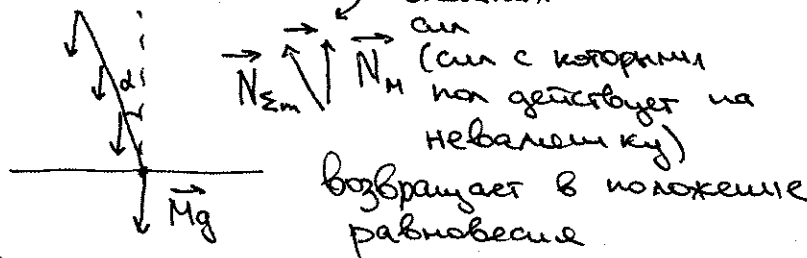 сил
α
N⃗Σm N⃗M (сил с которыми
пол действует на
неваляшку)
возвращает в положение
M⃗g
равновесия